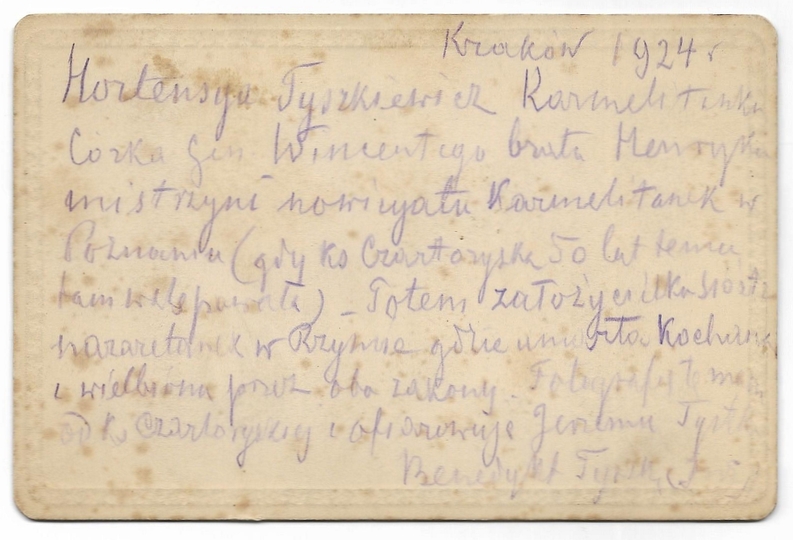 Kraków 1924 r
Hortensya Tyszkiewicz Karmelitanka
Corka Gen Wincentego brata Henryka
mistrzyni nowicyatu Karmelitanek w
Poznaniu (gdy ks Czartoryska 50 lat temu
tam wstępowała) – Potem założycielka Sióstr
nazaretanek w Rzymie gdzie umarła Kochana
i wielbiona przez oba zakony – Fotografię tę mam
od ks Czartoryskiej i ofiarowuje Jerzemu Tyszk
Benedykt Tyszk